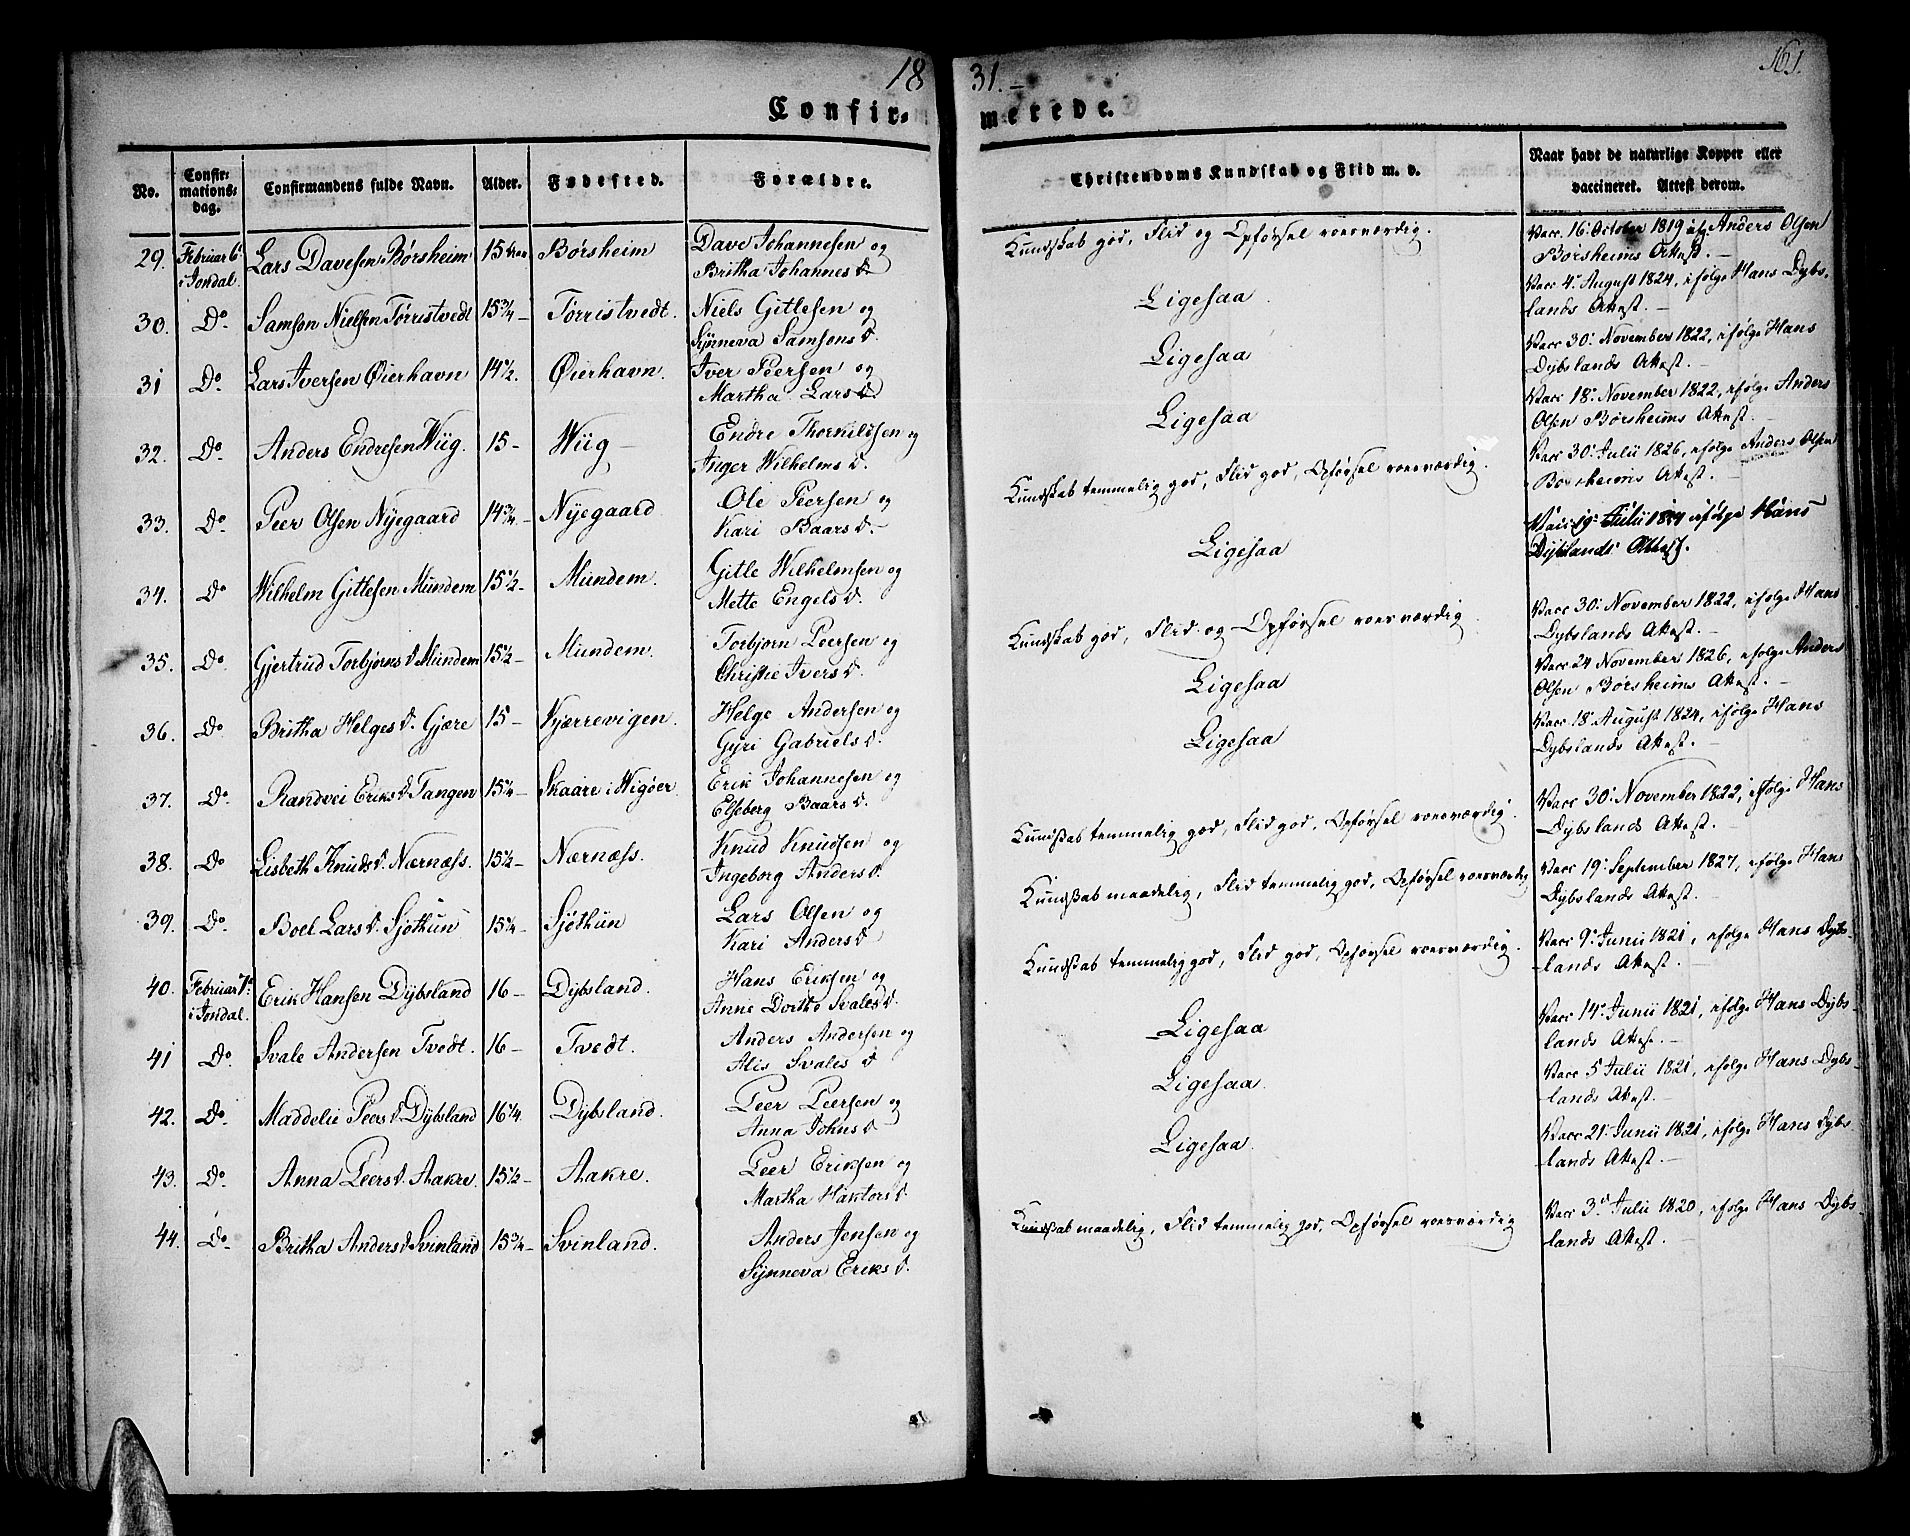 18 31.
161.
Confir- merede.
No.
Confir-
mations-
dag.
Confirmandens fulde Navn.
Alder.
Fødested.
Forældre.
Christendoms Kundskab og Flid m. v.
Naar havt de naturlige Kopper eller
vaccineret. Attest derom.
29. Februar 6. i Jondal. Lars Davesen Børsheim 15 Børsheim Dave Johannesen og
Britha Johannesd.
Kundskab god, Flid og Opførsel roesværdig.
Vacc. 16. October 1819 af Anders Olsen
Børsheims Attest.
30. Do. Samson Nielsen Tørristvedt 15¾ Tørristvedt. Niels Gitlesen og
Synneva Samsonsd.
Ligesaa
Vacc 4. August 1824, ifølge Hans Dybs-
lands Attest.
31 Do. Lars Iversen Øierhavn 14½. Øierhavn. Iver Peersen og
Martha Larsd
Ligesaa
Vacc 30. November 1822, ifølge Hans
Dybslands Attest.
32. Do. Anders Endresen Wiig. 15 Wiig Endre Thorkildsen og
Inger Wilhelmsd.
Ligesaa
Vacc 18. November 1822, ifølge Anders
Olsen Børsheims Attest.
33. Do. Peer Olsen Nyegaard 14¾ Nyegaard Ole Peersen og
Kari Baarsd.
Kundskab temmelig god, Flid god, Opførsel roesværdig.
Vacc 30. Julii 1826, ifølge Anders Olsen
Børsheims Attest.
34. Do. Wilhelm Gitlesen Mundem 15½ Mundem. Gitle Wilhelmsen og
Mette Engelsd.
Ligesaa
Vacc 19. Julii ifølge Hans
Dybslands Attest.
35. Do. Gjertrud Torbjørnsd Mundem 15½ Mundem. Torbjørn Peersen og
Christie Iversd.
Kundskab god, Flid og Opførsel roesværdig
Vacc 30. November 1822, ifølge Hans
Dybslands Attest.
36. Do. Britha Helgesd. Gjære 15 Kjærrevigen. Helge Andersen og
Gyri Gabrielsd.
Ligesaa
Vacc 24 November 1826, ifølge Anders
Olsen Børsheims Attest.
37. Do. Randvei Eriksd Tangen 15¼ Skaare i Wigøer. Erik Johannesen og
Elseberg Baarsd.
Ligesaa
Vacc 18. August 1824, ifølge Hans
Dybslands Attest.
38. Do Lisbeth Knudsd. Nærnæss. 15½ Nærnæss. Knud Knudsen og
Ingeborg Andersd.
Kundskab temmelig god, Flid god, Opførsel roesværdig.
Vacc 30. November 1822, ifølge Hans
Dybslands Attest.
39. Do. Boel Larsd. Sjøthun 15¼ Sjøthun Lars Olsen og
Kari Andersd
Kundskab maadelig, Flid temmelig god, Opførsel roesværdig
Vacc 19. September 1827, ifølge Hans
Dybslands Attest.
40. Februar 7. i Jondal. Erik Hansen Dybsland 16 Dybsland. Hans Eriksen og
Anne Dorthe Svalesd.
Kundskab temmelig god, Flid god, Opførsel roesværdig.
Vacc 9. Junii 1821, ifølge Hans Dybs-
lands Attest.
41 Do. Svale Andersen Tvedt. 16 Tvedt. Anders Andersen og
Alis Svalesd
Ligesaa
Vacc 14. Junii 1821, ifølge Hans Dybs-
lands Attest.
42. Do. Maddelie Peersd Dybsland 16¼ Dybsland. Peer Peersen og
Anna Johnsd
Ligesaa.
Vacc 5 Julii 1821, ifølge Hans Dybs-
lands Attest.
43. Do. Anna Peersd. Aakre. 15½ Aakre. Peer Eriksen og
Martha Haktorsd.
Ligesaa.
Vacc 21. Junii 1821, ifølge Hans Dybs-
lands Attest.
44. Do. Britha Andersd Svinland 15¾ Svinland. Anders Jensen og
Synneva Eriksd.
Kundskab maadelig, Flid temmelig god, Opførsel roesværdig
Vacc 3d Julii 1820, ifølge Hans Dybs-
lands Attest.